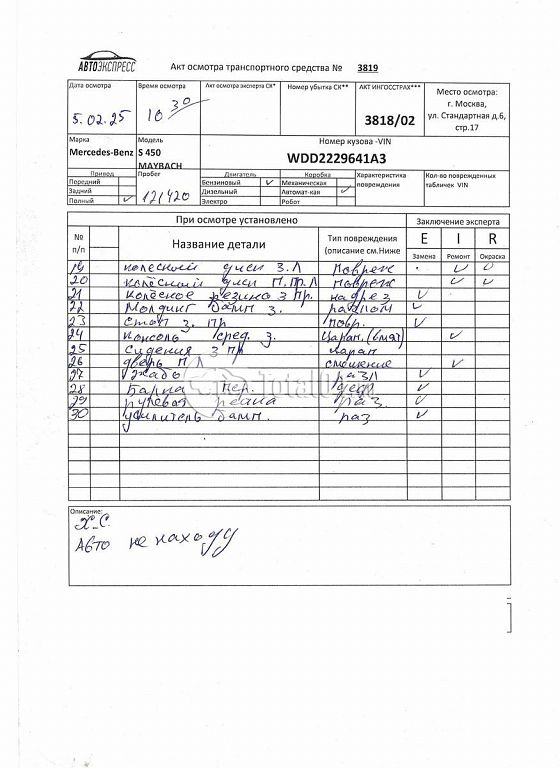 АВТОЭКСПРЕСС
Акт осмотра транспортного средства № 3819
Дата осмотра Время осмотра Акт осмотра эксперта СК* Номер убытка СК** АКТ ИНГОССТРАХ*** Место осмотра:
г. Москва,
ул. Стандартная д.6,
стр.17
5.02.25 10 30 3818/02
Марка Модель Номер кузова -VIN
Mercedes-Benz S 450 MAYBACH WDD2229641A3
Привод Пробег Двигатель Коробка Характеристика повреждения Кол-во поврежденных табличек VIN
Передний Бензиновый ✓ Механическая
Задний 121420 Дизельный Автомат-кая ✓
Полный ✓ Электро Робот
При осмотре установлено Заключение эксперта
№ п/п Название детали Тип повреждения (описание см.Ниже E I R
Замена Ремонт Окраска
19 колёсный диск З.Л Повреж ✓
20 колёсный диск П.пр.Л повреж ✓ ✓
21 колёсное резина З пр. надрез ✓
22 Молдинг бамп З. разлом ✓
23 Стоп З. пр повр. ✓
24 консоль сред. З. Царап. ✓
25 Сидения З пр царап
26 дверь П Л смещение ✓
27 разл ✓
28 Балка пер. деф ✓
29 рулевая рейка раз. ✓
30 усилитель бамп. раз ✓
TotalO
Описание:
Х.С.
Авто не на ходу